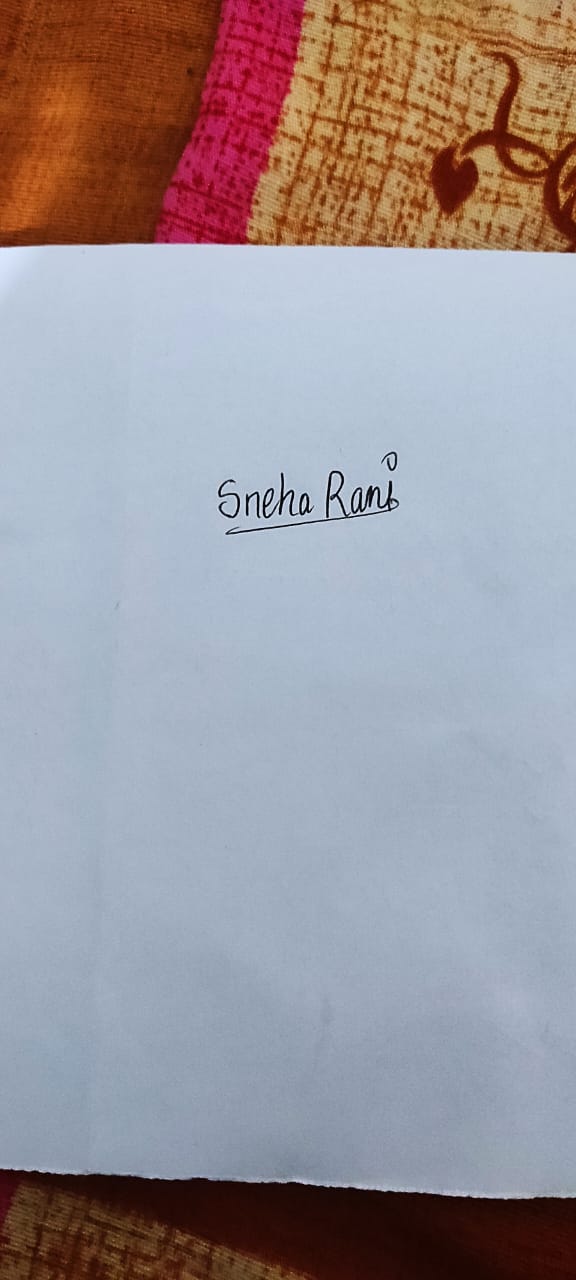 Sneha Rani